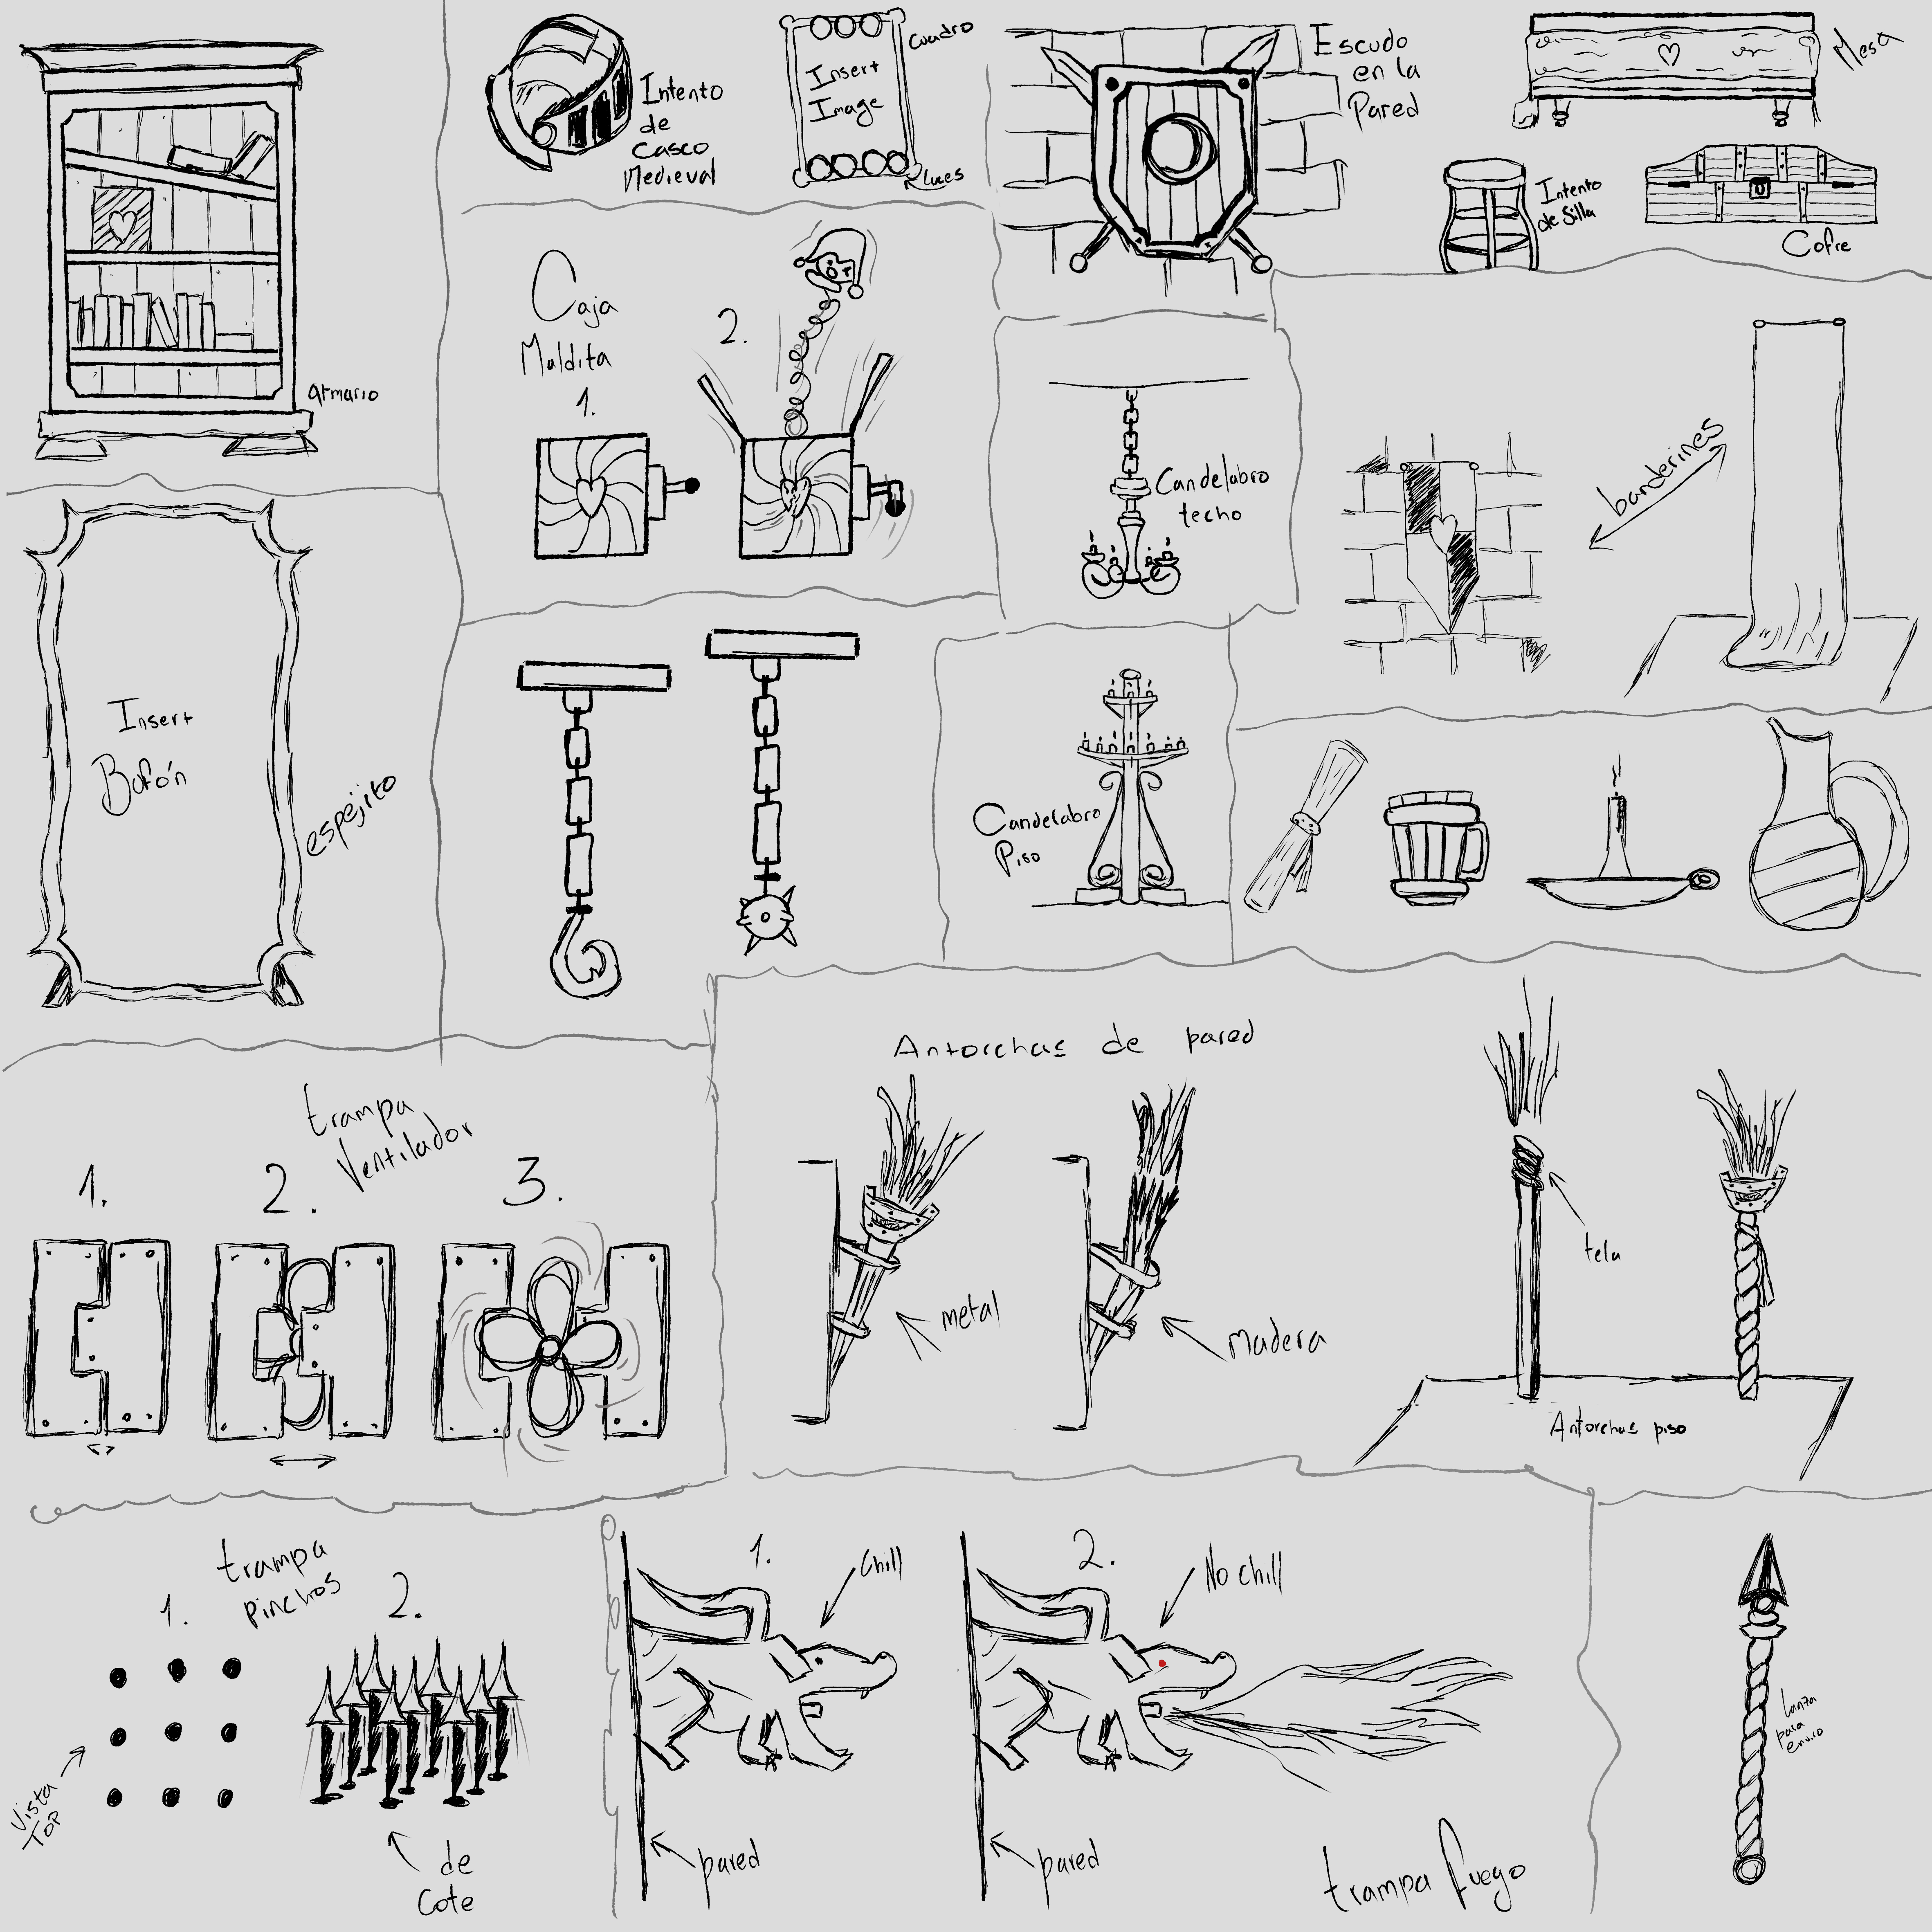 armario
Intento
de
Casco
Medieval
Cuadro
Insert
Image
Luces
Escudo
en la
Pared
Mesa
Intento
de Silla
Cofre
Caja
Maldita
1.
2.
Candelabro
techo
banderines
Insert
Bufón
espejito
Candelabro
Piso
trampa
Ventilador
1.
2.
3.
Antorchas de pared
metal
madera
tela
Antorchas piso
trampa
pinchos
1.
2.
Vista
Top
de
Cote
1.
Chill
pared
2.
No chill
pared
trampa fuego
Lanza
para
enviro